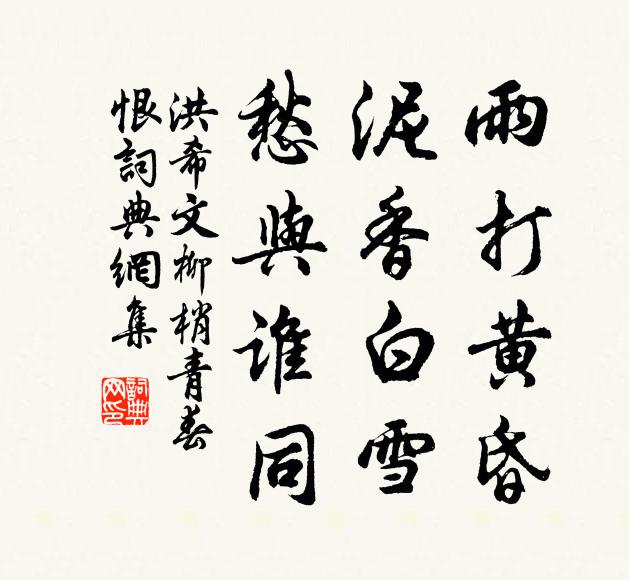 雨打黃昏
泥香白雪
愁與誰同
洪希文柳梢青春
恨詞典網集
詞典
网印